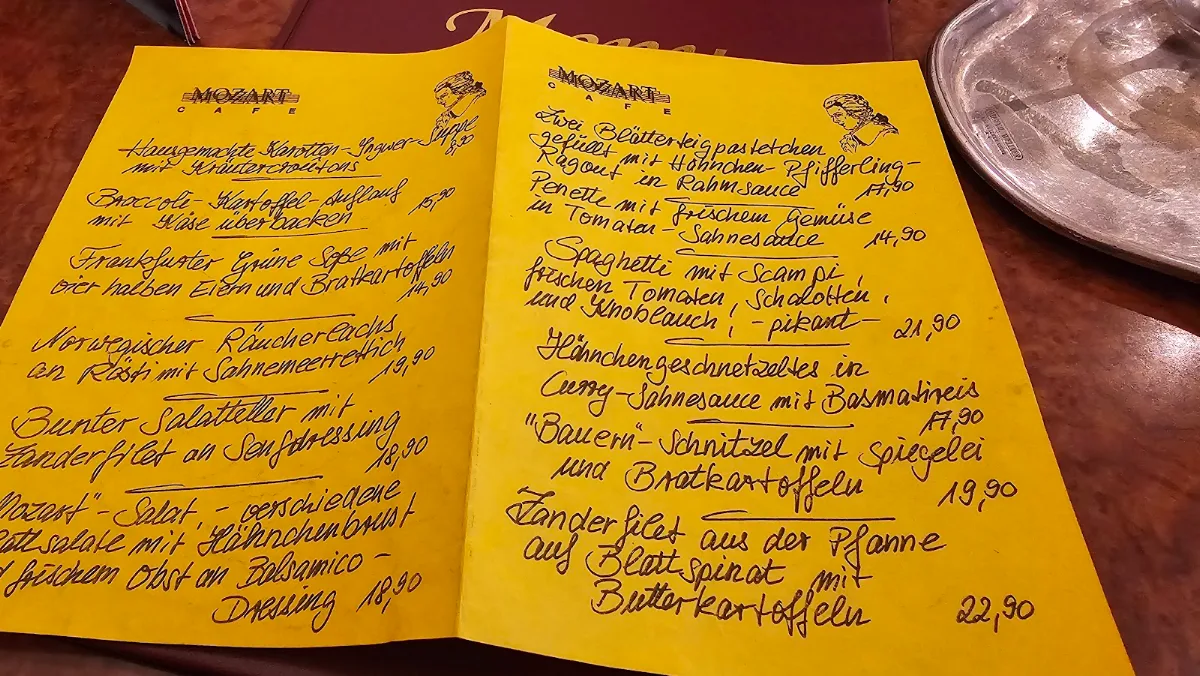 MOZART
CAFE
Hausgemachte Karotten-Ingwer-Suppe
mit Kräutercroûtons 8,90
Broccoli-Kartoffel-Auflauf
mit Käse überbacken 15,90
Frankfurter Grüne Soße mit
vier halben Eiern und Bratkartoffeln
14,90
Norwegischer Räucherlachs
an Rösti mit Sahnemeerrettich
19,90
Bunter Salatteller mit
Zanderfilet an Senfdressing
18,90
Mozart"-Salat, - verschiedene
Blattsalate mit Hähnchenbrust
frischem Obst an Balsamico-
Dressing 18,90
MOZART
CAFE
Zwei Blätterteigpastetchen
gefüllt mit Hähnchen-Pfifferling-
Ragout in Rahmsauce 17,90
Penette mit frischem Gemüse
in Tomaten-Sahnesauce 14,90
Spaghetti mit Scampi,
frischen Tomaten, Schalotten,
und Knoblauch, -pikant- 21,90
Hähnchengeschnetzeltes in
Curry-Sahnesauce mit Basmatireis
17,90
"Bauern"-Schnitzel mit Spiegelei
und Bratkartoffeln 19,90
Zanderfilet aus der Pfanne
auf Blattspinat mit
Butterkartoffeln 22,90